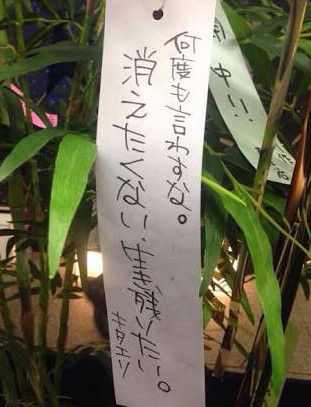 何度も言わすな。
消えたくない、生残りたい。
キタエリ
中!!